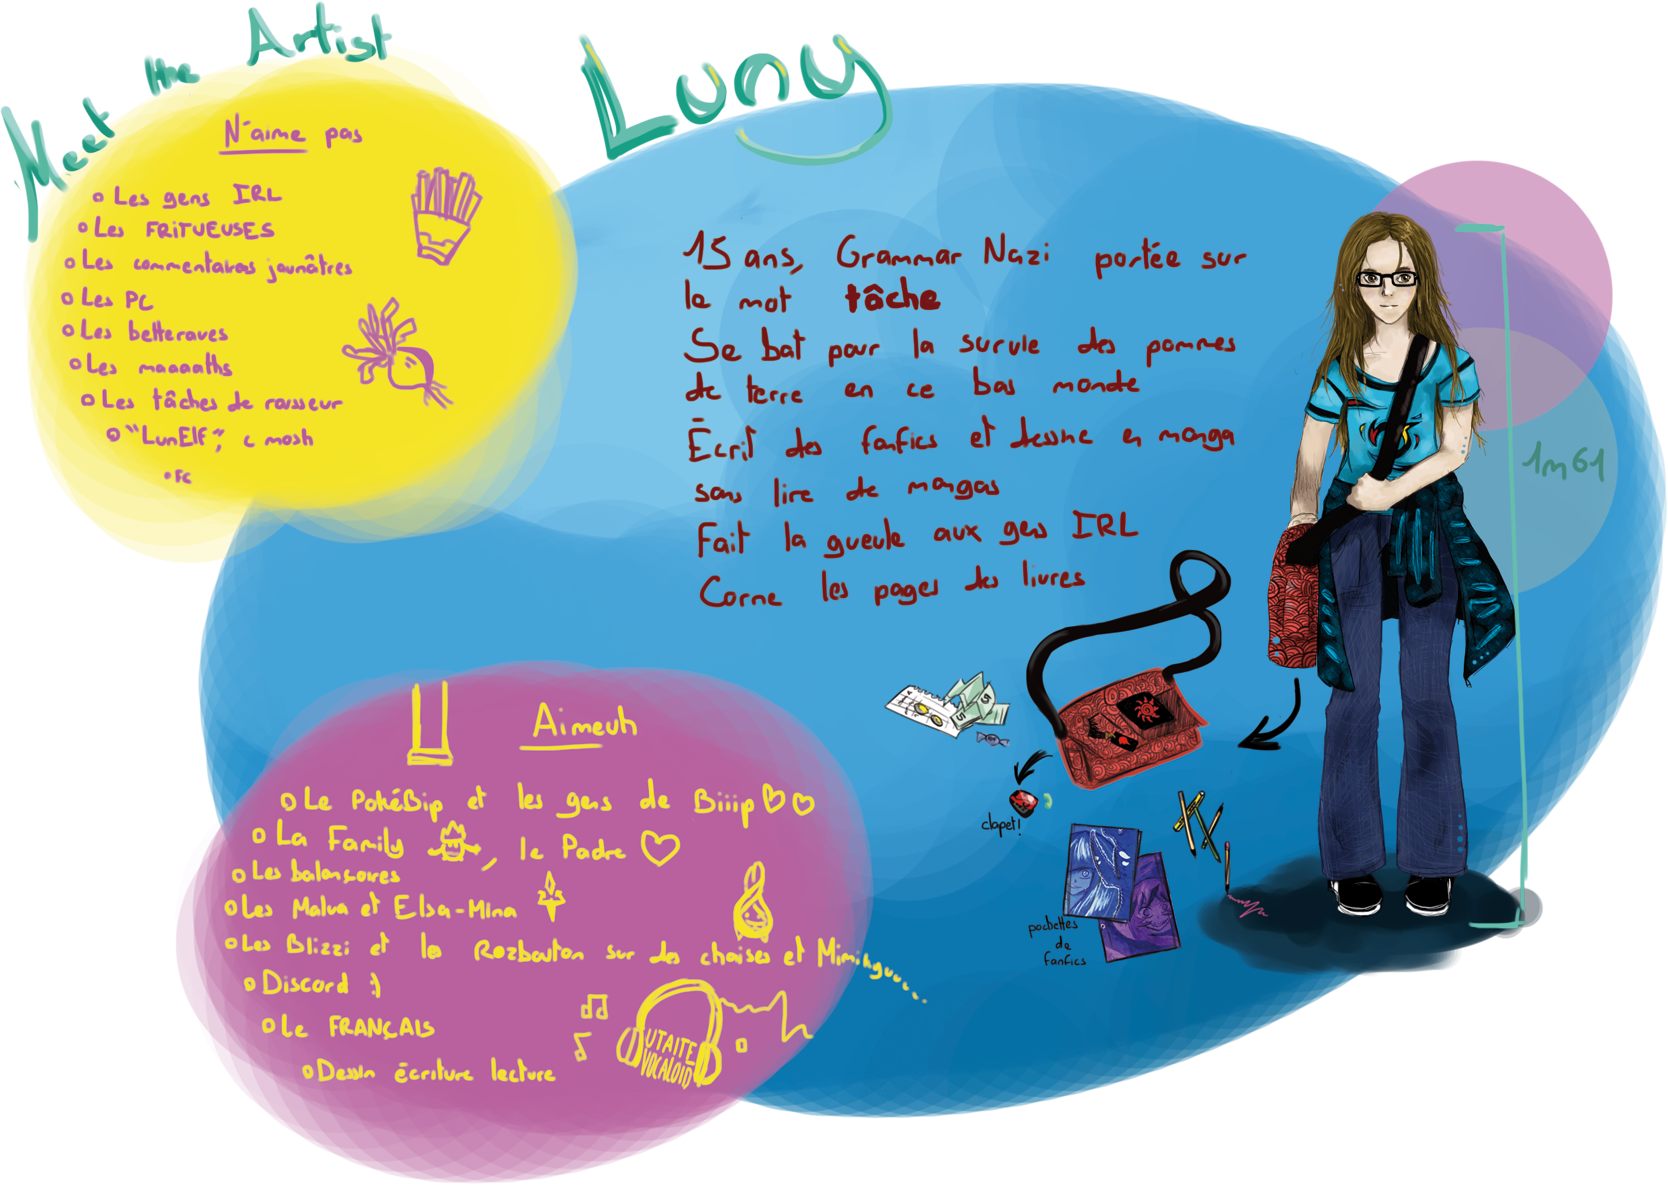 Meet the Artist
Luny
N'aime pas
Les gens IRL
Les FRITUEUSES
Les commentaires jaunâtres
Les PC
Les betteraves
Les maaaaths
Les tâches de rousseur
"LunElf", c mosh
FC
15 ans, Grammar Nazi portée sur
le mot tâche
Se bat pour la survie des pommes
de terre en ce bas monde
Écrit des fanfics et dessine en manga
sans lire de mangas
Fait la gueule aux gens IRL
Corne les pages des livres
1m61
clapet!
pochettes
de
fanfics
Aimeuh
Le PokéBip et les gens de Biiip
La Family, le Padre
Les balançoires
Les Malva et Elsa-Mina
Les Blizzi et la Rozbouton sur des chaises et Mimihguu...
Discord :)
Le FRANÇAIS
Dessin écriture lecture
UTAITE
VOCALOID